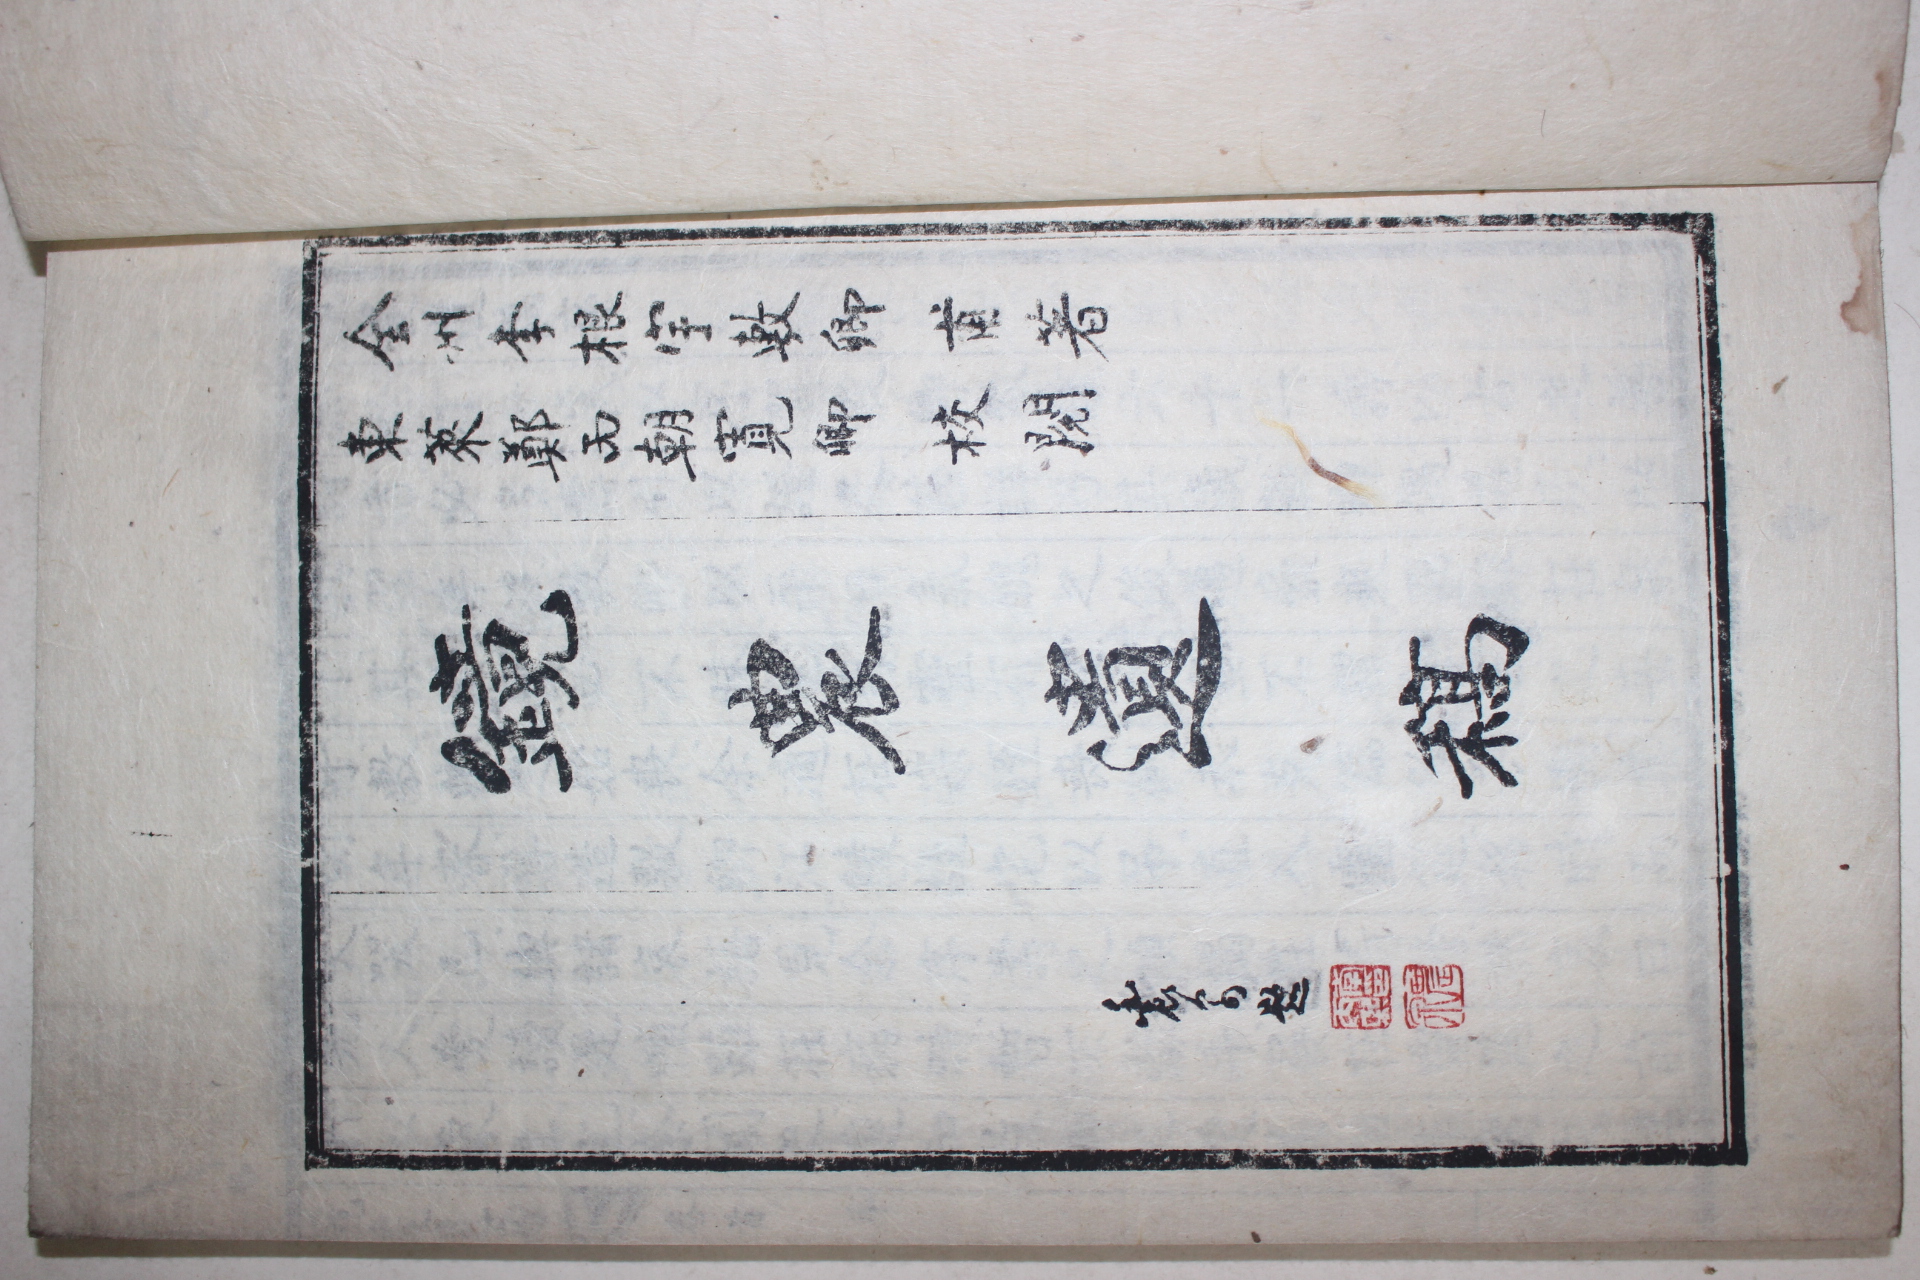 全州李根宇敷卿 甫著
東萊鄭丙朝寬卿 校閱
鏡農遺稿
題